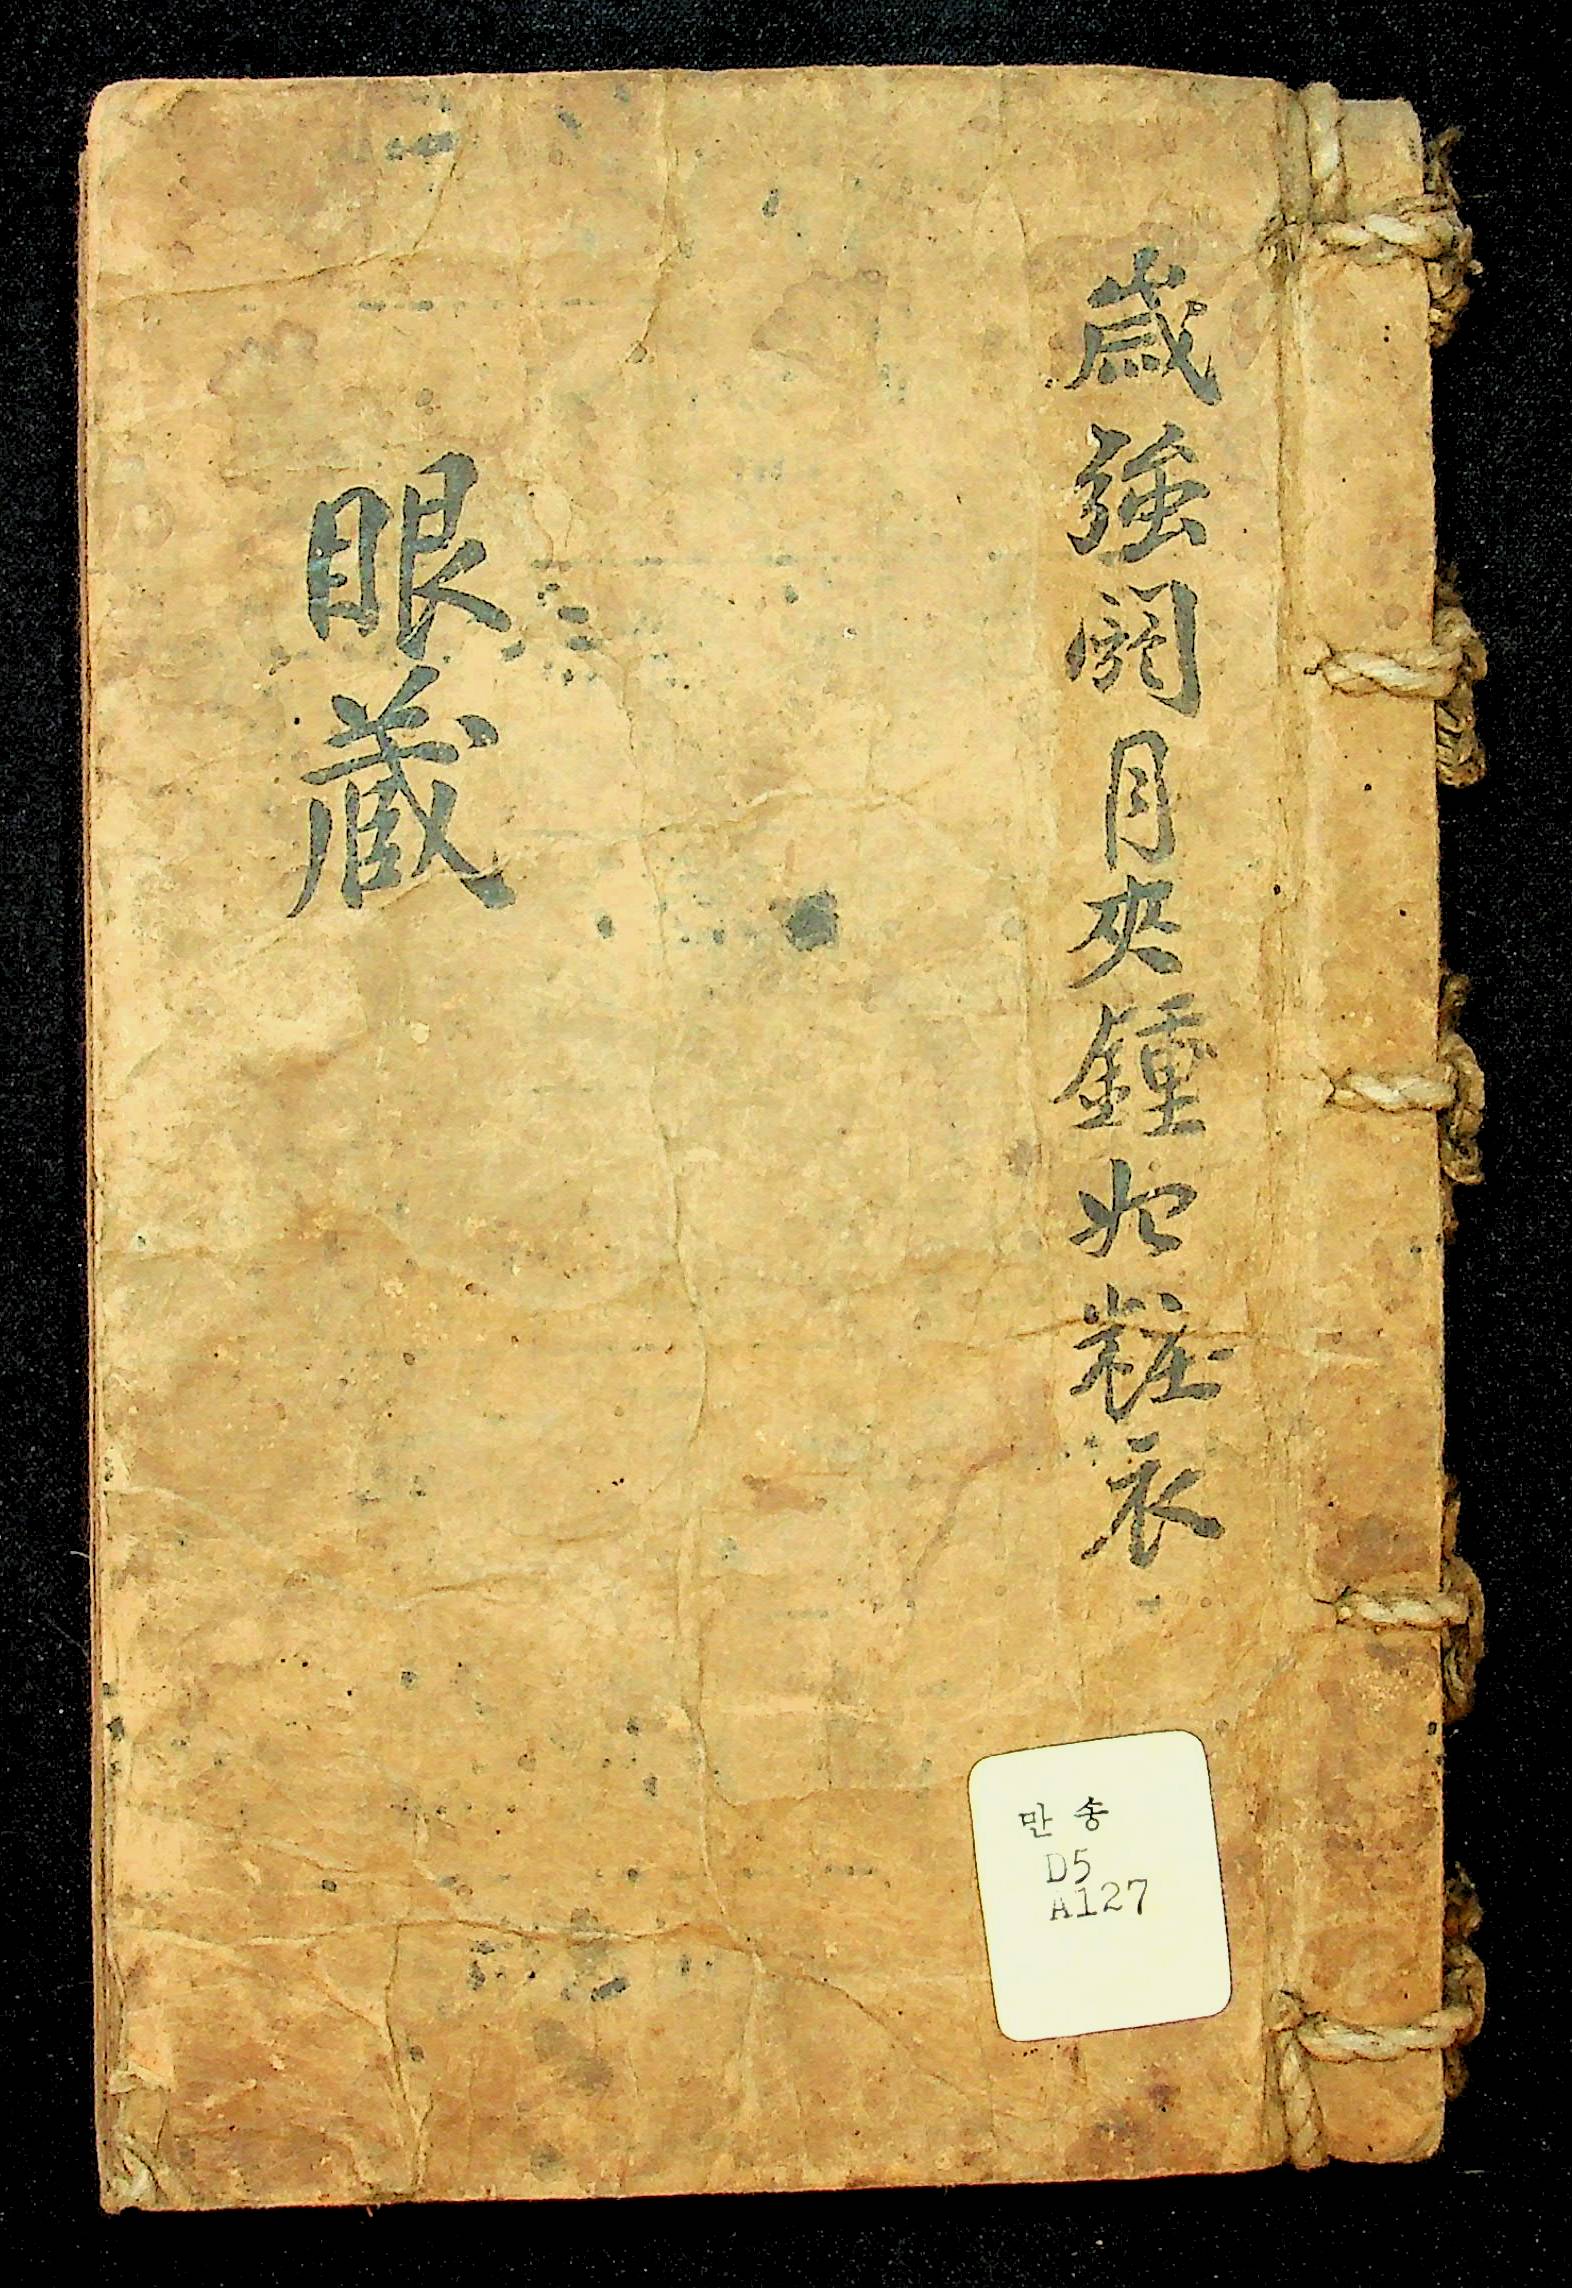 歲強圉月夾鍾始粧衣
眼蔵
만송
D5
A127